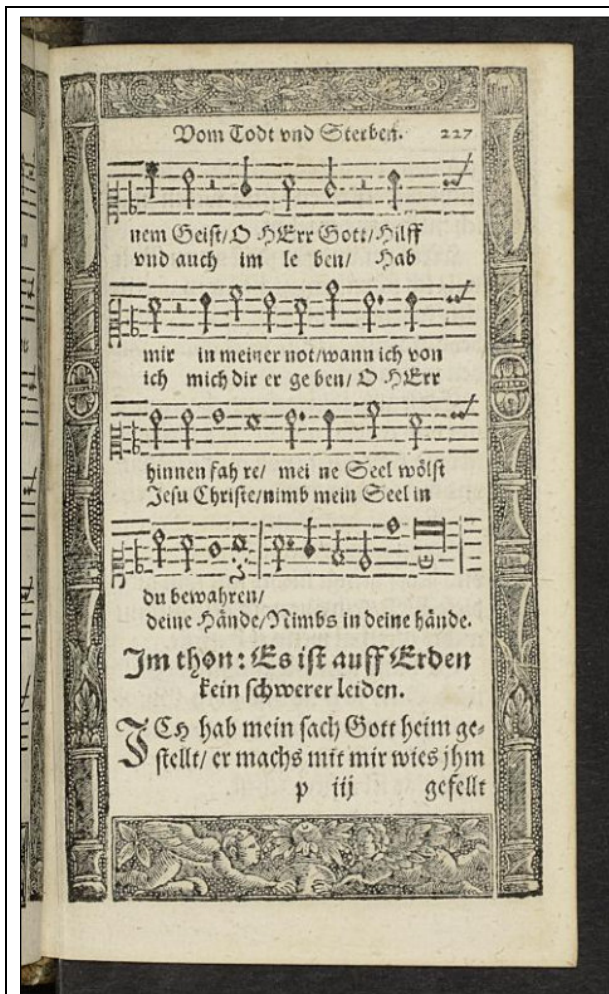 Vom Todt vnd Sterben. 227
nem Geist/ O HErr Gott/ Hilff
vnd auch im le ben/ Hab
mir in meiner not/wann ich von
ich mich dir er ge ben/ O HErr
hinnen fah re/ mei ne Seel wölst
Jesu Christe/nimb mein Seel in
du bewahren/
deine Hände/Nimbs in deine hände.
Im thon: Es ist auff Erden
kein schwerer leiden.
ICH hab mein sach Gott heim ge⸗
stellt/ er machs mit mir wies jhm
p iij gefellt